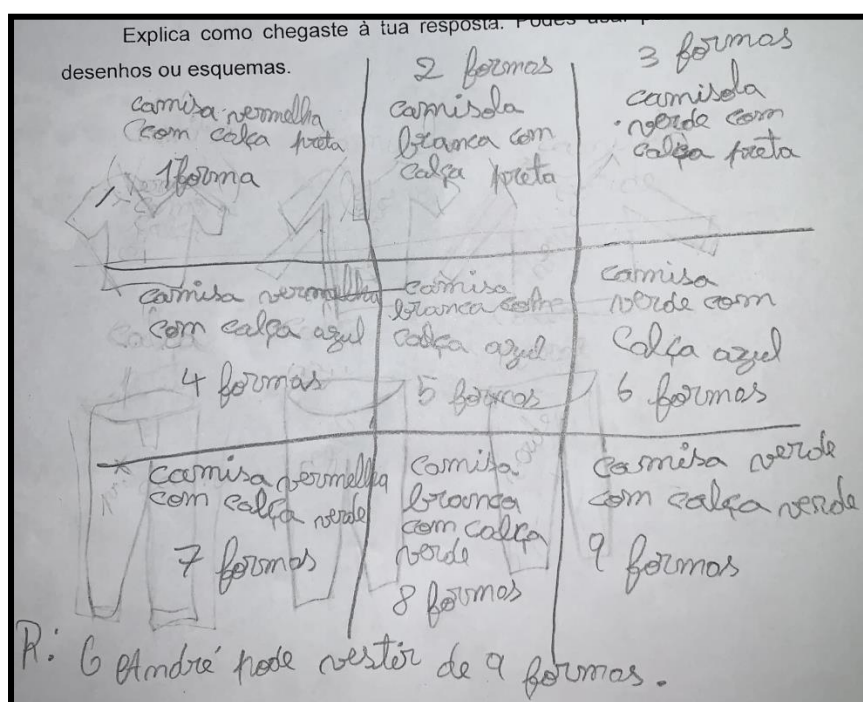 Explica como chegaste à tua resposta. Podes usar
desenhos ou esquemas.
camisa vermelha
com calça preta
1 forma
2 formas
camisola
branca com
calça preta
3 formas
camisola
verde com
calça preta
camisa vermelha
com calça azul
4 formas
camisa
branca com
calça azul
5 formas
camisa
verde com
calça azul
6 formas
camisa vermelha
com calça verde
7 formas
camisa
branca
com calça
verde
8 formas
camisa verde
com calça verde
9 formas
R: O André pode vestir de 9 formas.